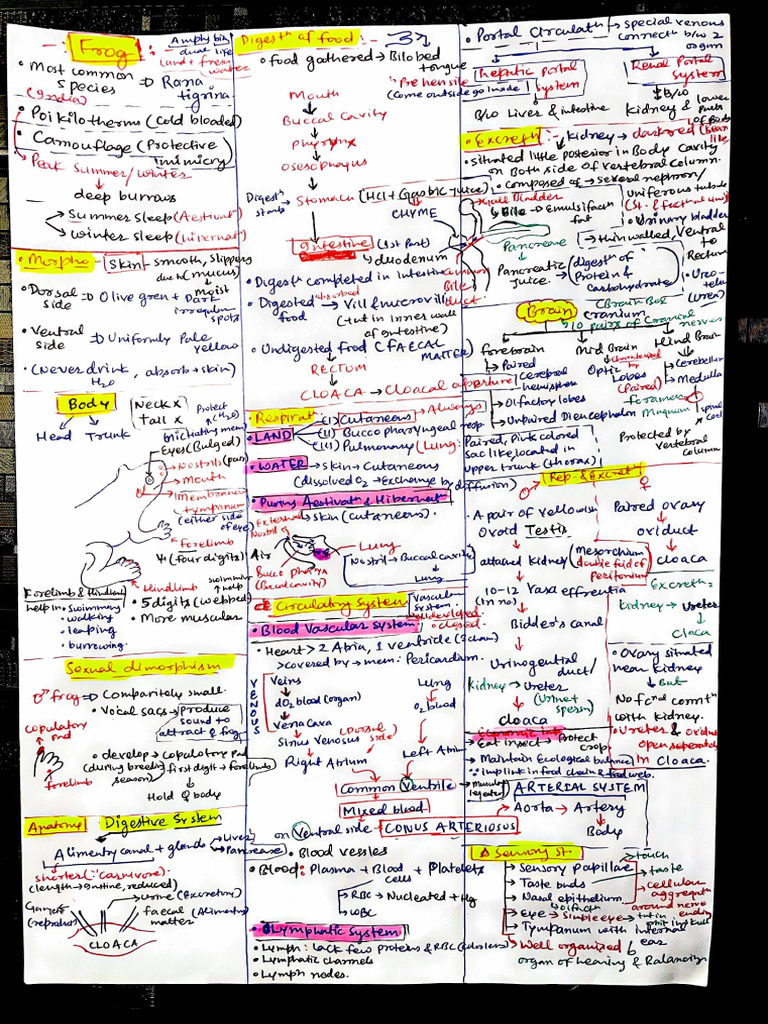 Frog
Amphybia
dual life
land + fresh water
• Most common species ⇒ Rana tigrina
(India)
• Poikilotherm (Cold bloaded)
• Camouflage (Protective mimicry)
Peak Summer/winter
deep burrows
→ Summer sleep (Aestivatn)
→ Winter sleep (hibernatn)
• Morpho
Skin - smooth, slippery
due (mucus)
• Dorsal side ⇒ Olive gren + Dark irregular spots
moist
• Ventral side ⇒ Uniformly Pale yellow
• (Never drink H2O, absorb → skin)
Body
Head Trunk
Neck X
Tail X
Eyes (Bulged)
Protect (H2O)
nictitating mem
Nostrils (pair)
Mouth
membranous tympanum
(either side of eye)
forelimb
4 (four digits)
Forelimb & Hindlimb
help in • swimming
• walking
• leaping
• burrowing.
Hindlimb
swimming help
• 5 digits (webbed)
• More muscular
Sexual dimorphism
♂ frog ⇒ Comparitely small.
• Vocal sacs → produce sound to attract ♀ frog
copulatory pad
forelimb
• develop → copulatory pad
(during breeding season)
first digit → forelimb
Hold ♀ body
Anatomy: Digestive System
Alimentry canal + glands
→ Liver
→ Pancrease
shorter (∵ carnivore)
(length → intine, reduced)
Gametes (reproduc)
urine (Excretion)
faecal (Alimentry) matter
CLOACA
Digestn of food
• food gathered → Bilobed tongue
Prehensile
(Come outside go inside)
Mouth
Buccal cavity
Pharynx
Osesophagus
Digestn starts → Stomach (HCl + Gastric Juice)
CHYME
Intestine (1st Part)
duodenum
• Digestn completed in intestine
• Digested food → Villi & microvilli
absorbed
(→ tut in inner wall of Intestine)
• Undigested food (FAECAL MATTER)
RECTUM
CLOACA → Cloacal aperture
• Respiratn
• LAND
(i) Cutaneous → Always
(ii) Bucco pharyngeal resp
(iii) Pulmonary (Lung:
Paired, Pink colored sac like, located in upper trunk (thorax)
• WATER → skin → Cutaneous
(dissolved O2 → Exchange by diffusion)
• During Aestivatn & Hibernatn
→ skin (cutaneous).
External Nostril
Air
Lung
Bucco pharyn (Buccal cavity)
Nostril → Buccal cavity
Lung
Circulatory System
Vascular system
well developed
• closed.
• Blood Vascular system
• Heart > 2 Atria, 1 ventricle (3 cham)
> covered by → mem: Pericardium.
VENOUS
Veins
dO2 blood (organ)
Vena Cava
Sinus Venosus (Dorsal side)
Right Atrium
Lung
O2 blood
Left Atrium
Common Ventrile
Mixed blood
on Ventral side - CONUS ARTERIOSUS
• Blood vessles
• Blood: Plasma + Blood cells + Platelets
→ RBC → Nucleated + Hg
→ WBC
• Lymphatic System
• Lymph: lack few proteins & RBC
• Lymphatic channels
• Lymph nodes.
• Portal Circulatn → special venous connectn b/w 2 organ
Hepatic Portal System
b/w Liver & intestine
Renal Portal System
b/w
Kidney & lower Parts of Body
• Excretn:- Kidney → darkred (Bean like)
• situated little posterior in Body cavity on Both side of vertebral column.
• composed of → several nephron/ Uniferous tubule
(st. & fectnal unit)
Gall Bladder
Bile → Emulsificatn fat
Pancrease
Pancreatic Juice.
(digestn of Protein & Carbohydrate)
Common Bile duct
• Urinary bladder
→ thin walled, Ventral to Rectum
• Ureotelic (Urea)
Brain
(Brain Box) cranium
10 pairs of Cranial nerves
forebrain
→ Paired Cerebral hemisphere
→ Olfactory lobes
→ Unpaired Diencephalon
Mid Brain
Optic Lobes (Paired)
Hind Brain
→ Cerebellum
→ Medulla
Foramen Magnum
spinal cord
Protected by vertebral column
Rep. & Excretn
♂
A pair of yellowish Ovoid Testis
attached Kidney (Mesorchium double fold of Peritonium)
10-12 Vasa effrentia
(in no)
Bidder's canal
Urinogential duct/
Kidney → Ureter
(Urine + sperm)
cloaca
♀
Paired ovary
oviduct
cloaca
Excretn:
kidney → Ureter
Cloca
• Ovary situated near kidney
But
No fcnal conntn with kidney.
• Ureter & oviduct open seperately In Cloaca.
Economic imp
→ Eat insect → Protect crop
→ Maintain Ecological balance
∵ Imp link in food chain & food web.
→ muscular legs
ARTERIAL SYSTEM
→ Aorta → Artery
Body
Sensory st.
→ Sensory Papillae → touch
→ Taste buds → taste
→ Nasal epithelium
→ Eye → Simple eye
→ Tympanum with internal ear
cellular aggregatn around nerve ending
Well organized
organ of hearing & Balancing